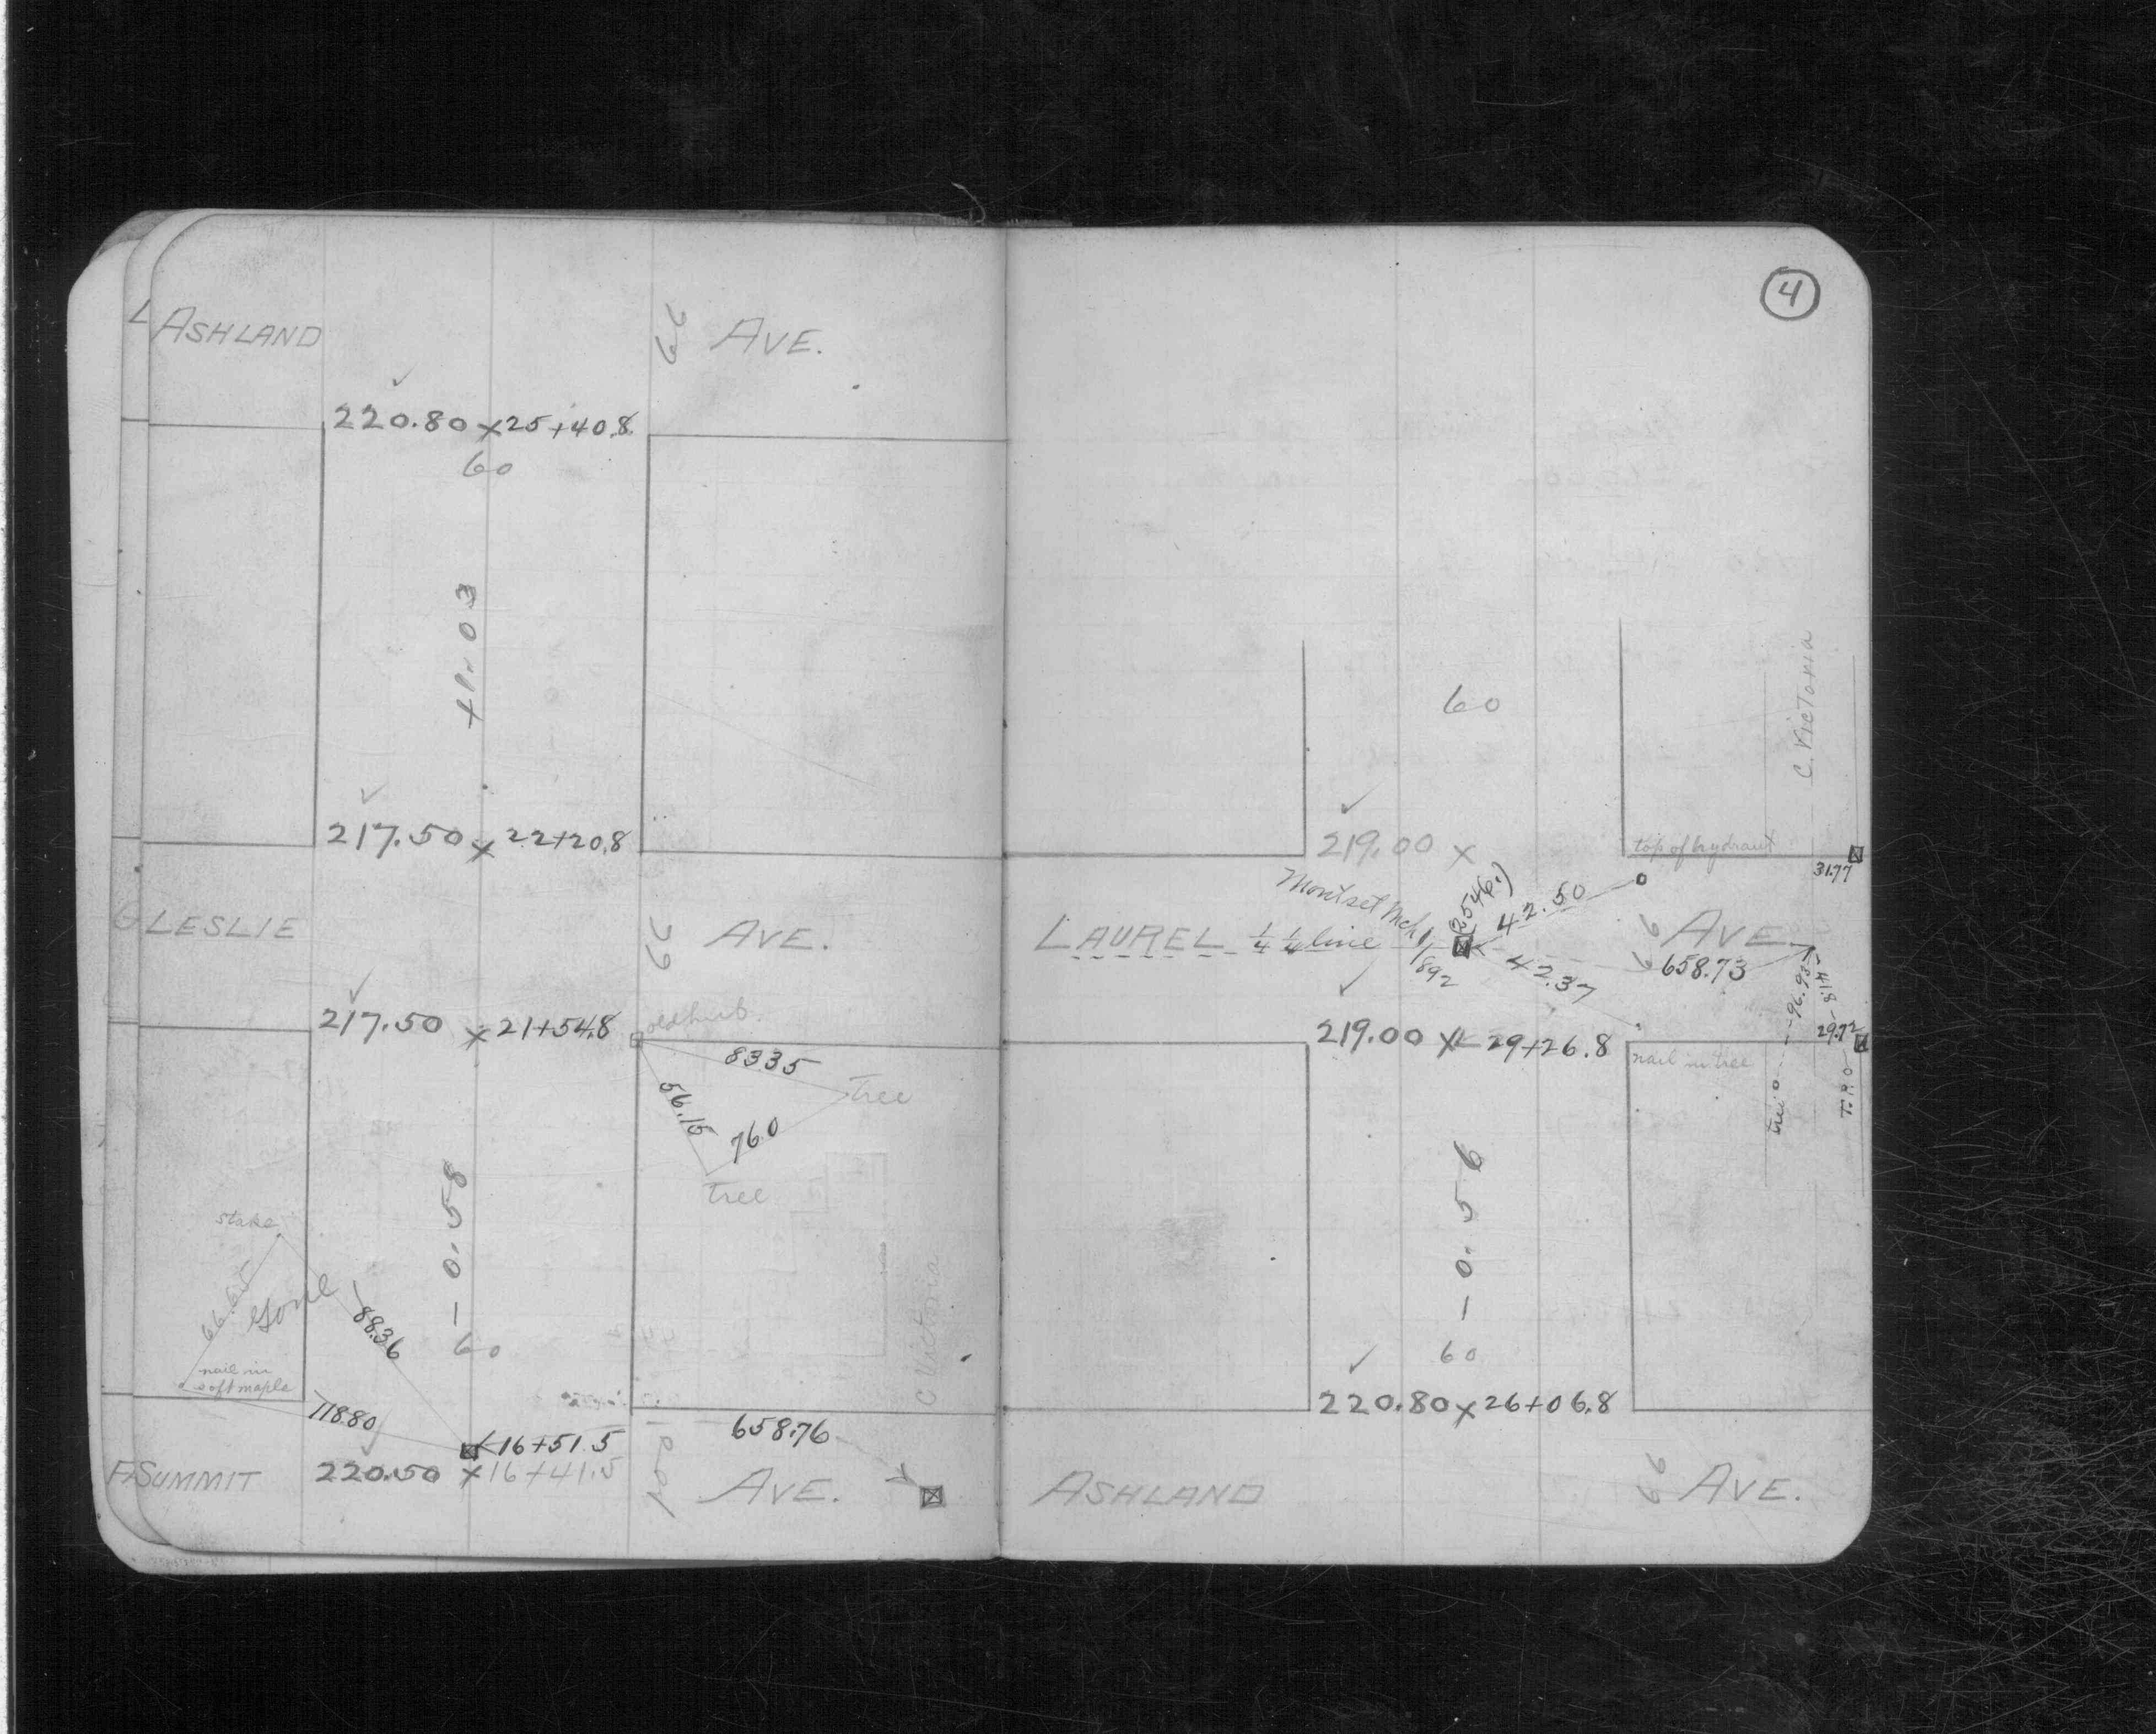 ASHLAND 66 AVE.
220.80 x 25+40.8
60
+1.03
217.50 x 22+20.8
LESLIE 66 AVE.
217.50 x 21+54.8
old hub.
83.35
Tree
56.15
76.0
Tree
-0.58
stake
66.65
Gone
88.36
60
nail in
soft maple
118.80
16+51.5
658.76
C Victoria
SUMMIT 220.50 x 16+41.5 100 AVE.
4
C. Victoria
60
219.00 x
top of hydrant
31.77
Mont set Mch 1892
(2546.)
42.50
LAUREL 1/4 1/4 line 66 AVE.
658.73
42.37
96.93
41.8
219.00 x 29+26.8
29.72
nail in tree
-0.56
60
220.80 x 26+06.8
ASHLAND 66 AVE.